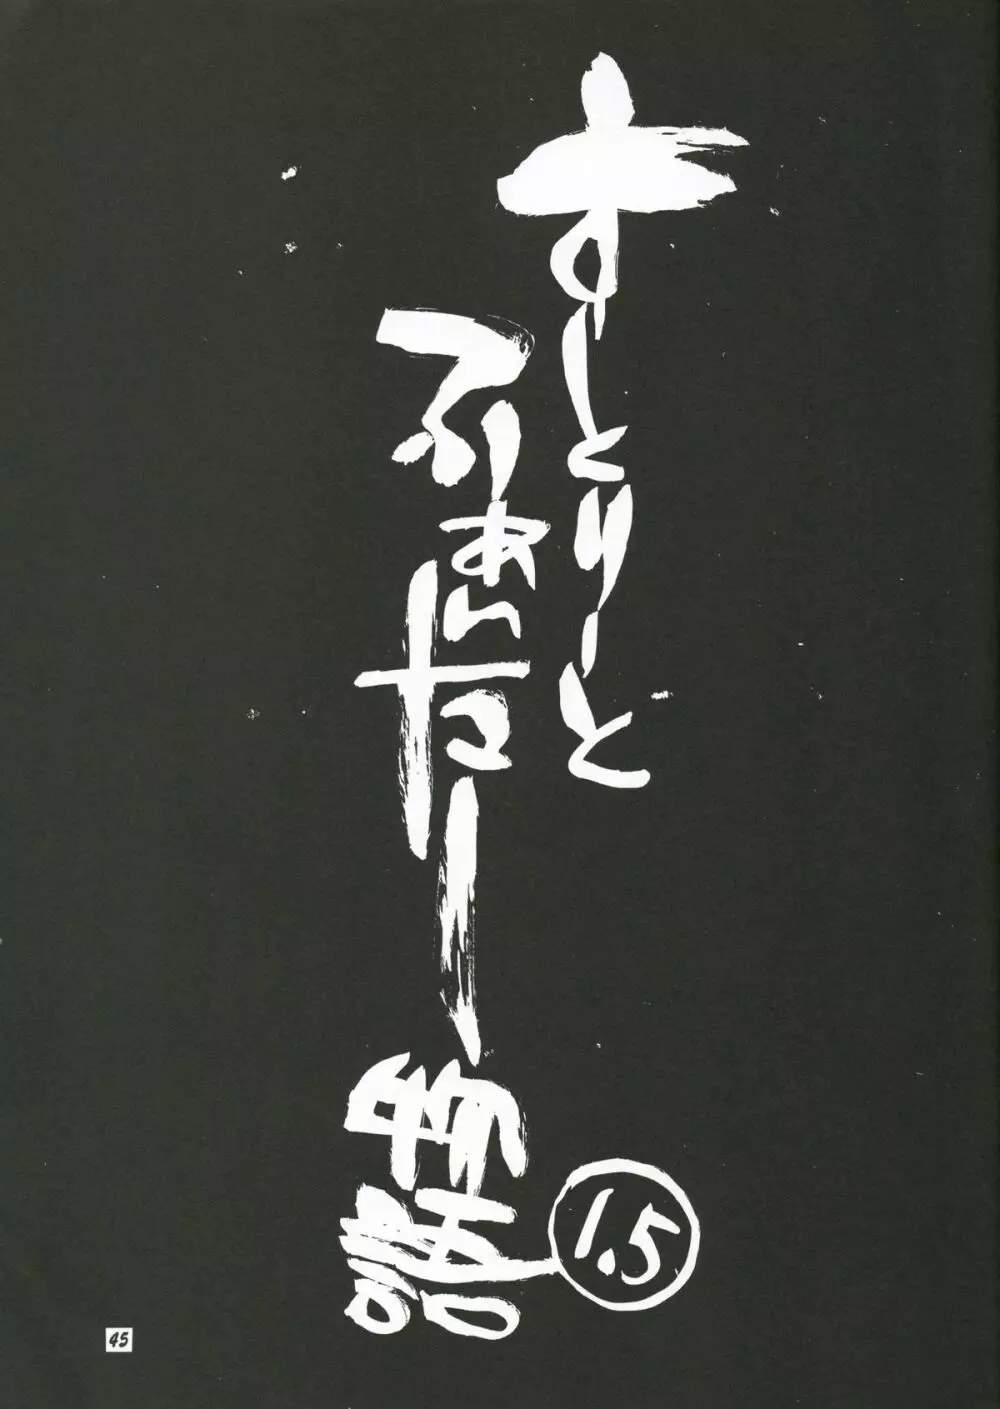 すとりーと
ふぁいたー
物語
1.5
45